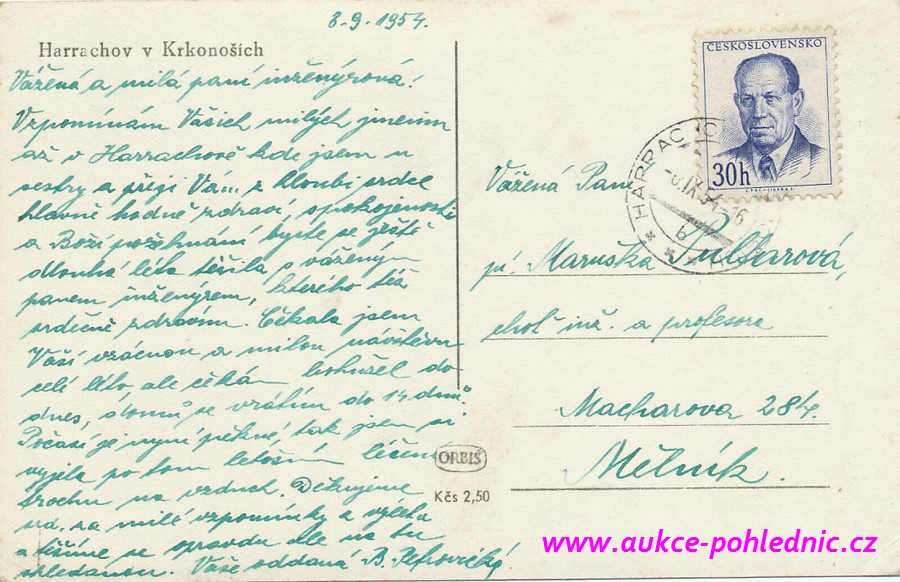 8.9.1954.
Harrachov v Krkonoších
Vážená a milá paní inženýrová!
Vzpomínám Vašich milých jmenin
až v Harrachově kde jsem u
sestry a přeji Vám z hloubi srdce
hlavně hodně zdraví, spokojenosti
a Boží požehnání byste se ještě
dlouhá léta těšila s váženým
panem inženýrem, kterého též
srdečně zdravím. Čekala jsem
Vaší vzácnou a milou návštěvu
celé léto, ale čekám bohužel do
dnes, domů se vrátím do 14 dnů.
Počasí je nyní pěkné, tak jsem si
vyjela po tom letošním léčení
trochu na vzduch. Děkujeme
srd. za milé vzpomínky z výletu
a těšíme se opravdu dle na tu
shledanou. Vaše oddaná B.
ČESKOSLOVENSKO
30h
HARRACHOV
-8.IX.54-16
b
Vážená Paní
pí. Maruška
choť inž. a profesora
Macharova 284.
Mělník.
ORBIS
Kčs 2,50
www.aukce-pohlednic.cz